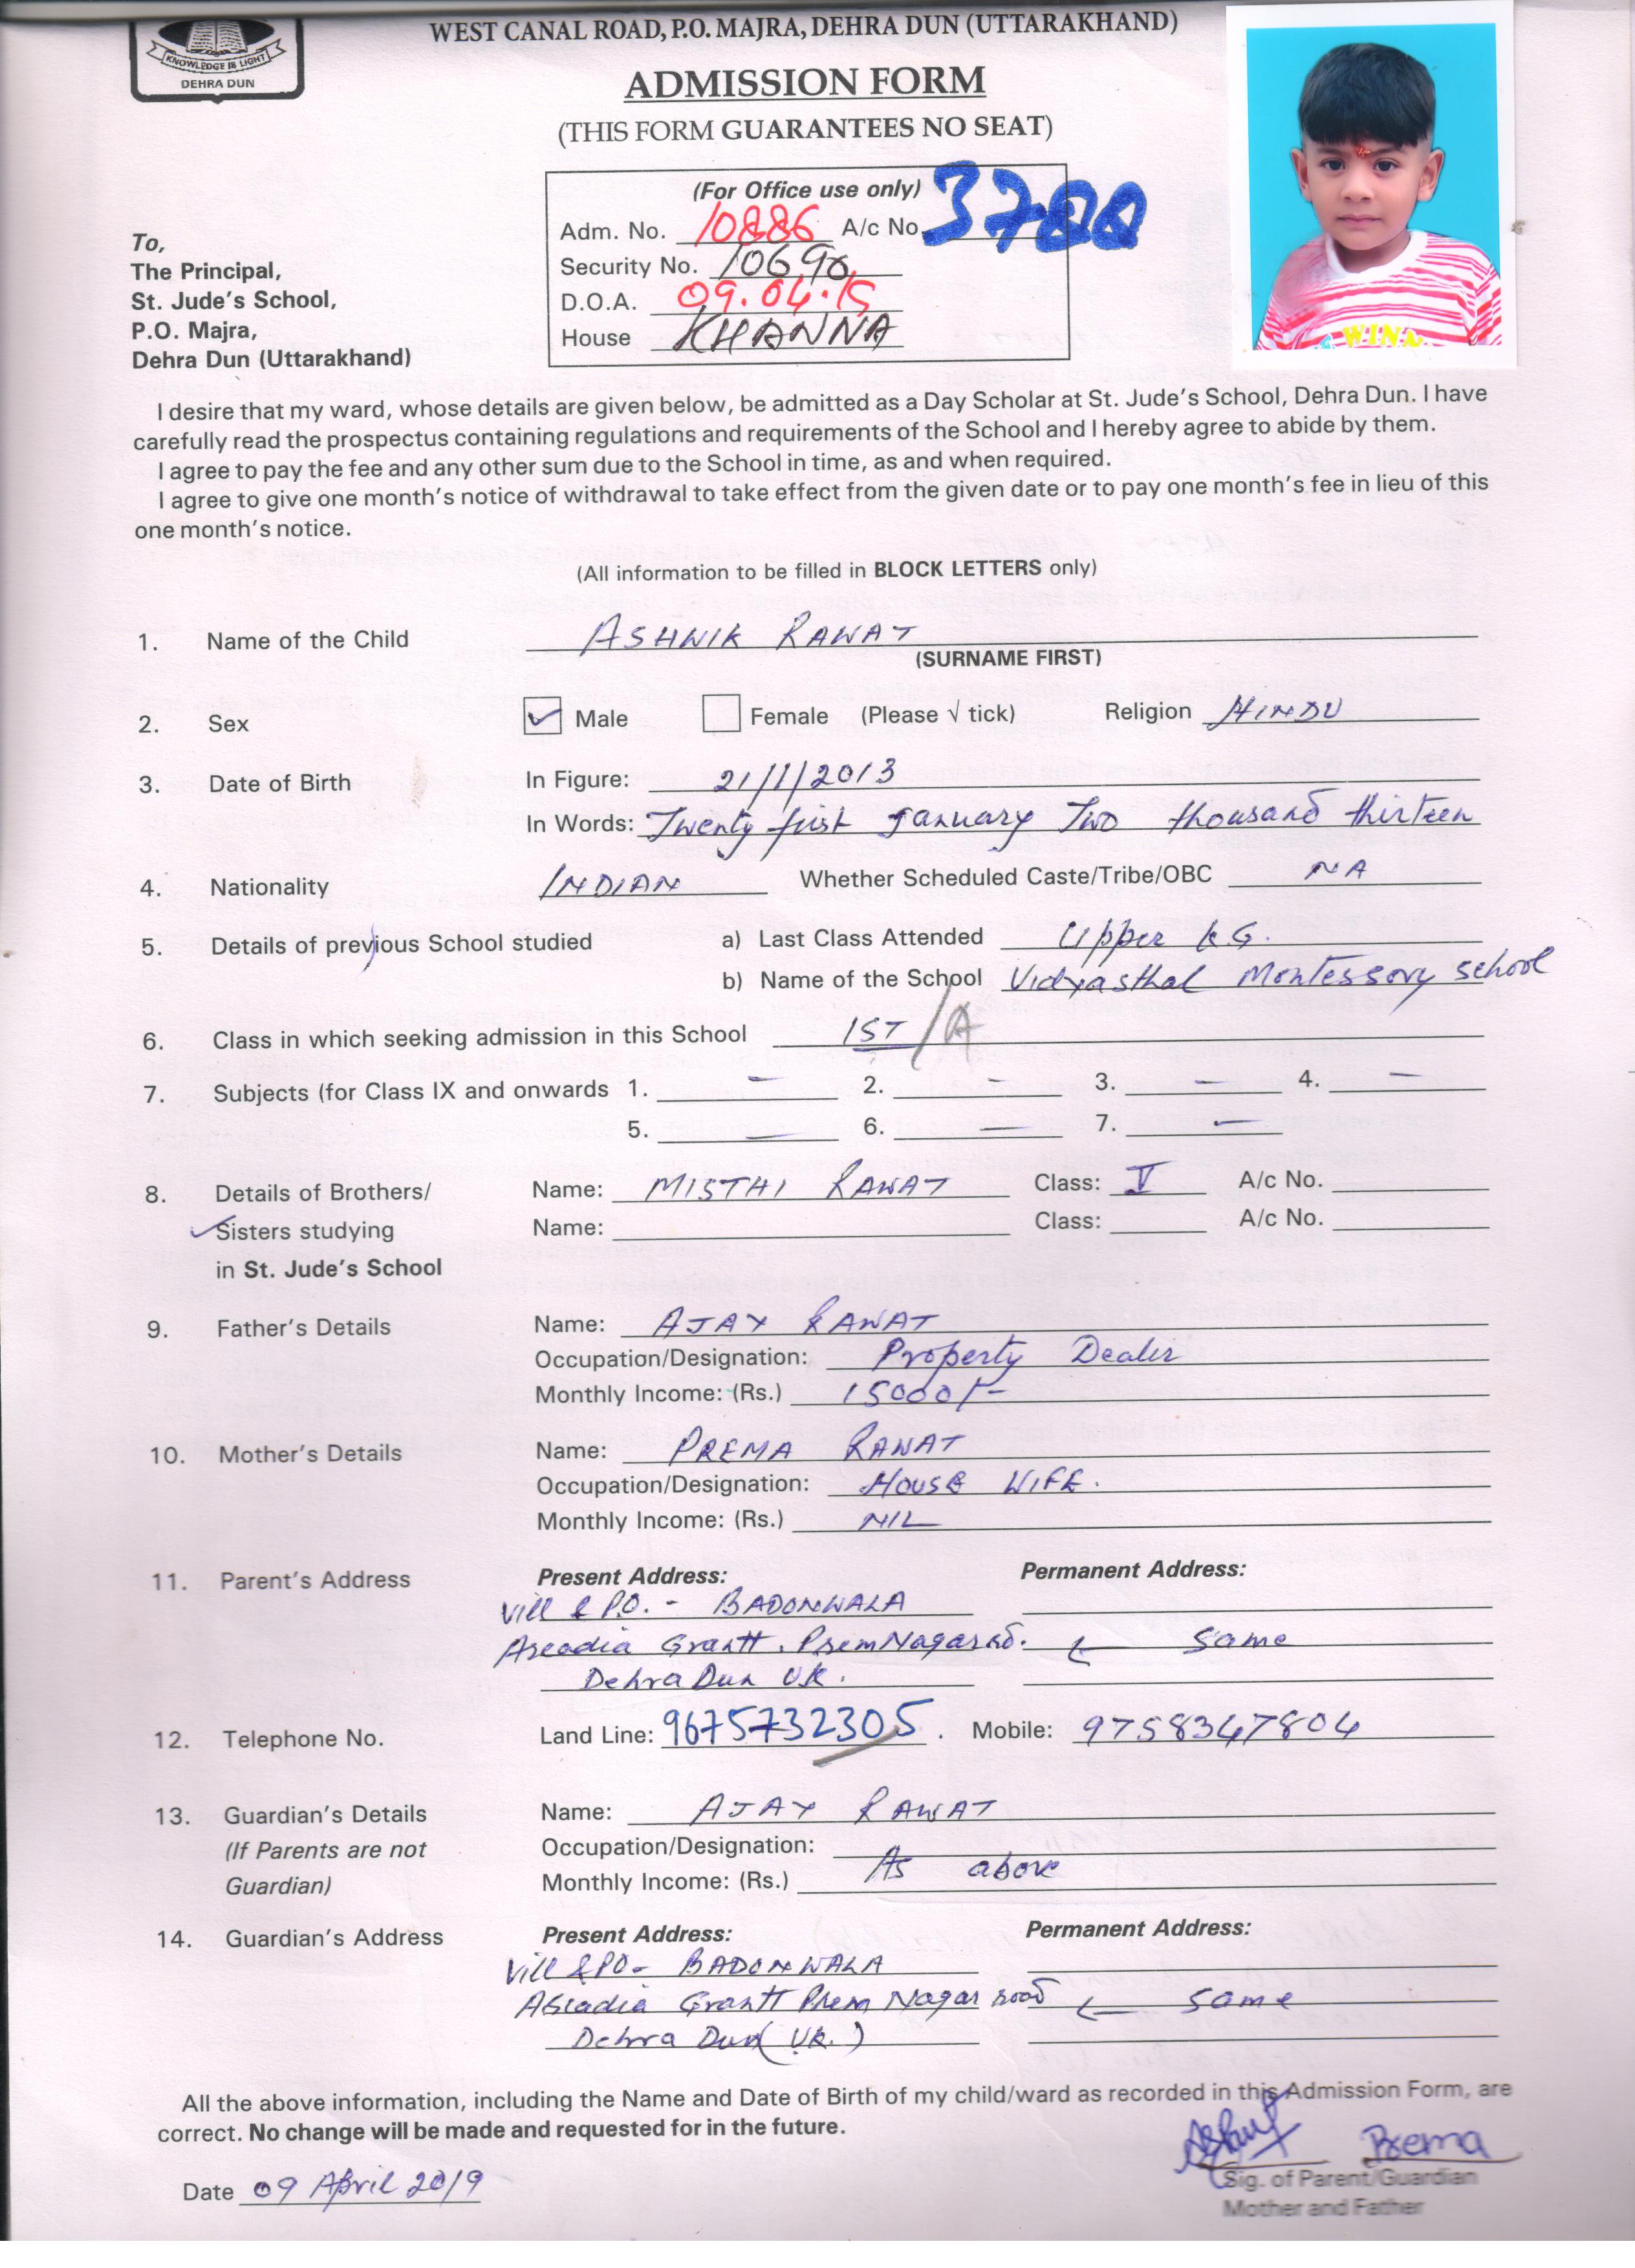 WEST CANAL ROAD, P.O. MAJRA, DEHRA DUN (UTTARAKHAND)
KNOWLEDGE IS LIGHT
DEHRA DUN
ADMISSION FORM
(THIS FORM GUARANTEES NO SEAT)
(For Office use only)
Adm. No. 10886 A/c No. 3788
Security No. 10690
D.O.A. 09.04.15
House KHANNA
To,
The Principal,
St. Jude's School,
P.O. Majra,
Dehra Dun (Uttarakhand)
WINN
I desire that my ward, whose details are given below, be admitted as a Day Scholar at St. Jude's School, Dehra Dun. I have
carefully read the prospectus containing regulations and requirements of the School and I hereby agree to abide by them.
I agree to pay the fee and any other sum due to the School in time, as and when required.
I agree to give one month's notice of withdrawal to take effect from the given date or to pay one month's fee in lieu of this
one month's notice.
(All information to be filled in BLOCK LETTERS only)
1. Name of the Child ASHWIK RAWAT
(SURNAME FIRST)
2. Sex ✓ Male Female (Please √ tick) Religion HINDU
3. Date of Birth In Figure: 21/1/2013
In Words: Twenty first January Two thousand thirteen
4. Nationality INDIAN Whether Scheduled Caste/Tribe/OBC NA
5. Details of previous School studied a) Last Class Attended Upper K.G.
b) Name of the School Vidyasthal Montessory school
6. Class in which seeking admission in this School 1ST/A
7. Subjects (for Class IX and onwards 1. - 2. - 3. - 4. -
5. - 6. - 7. -
8. Details of Brothers/ Name: MISTHI RAWAT Class: V A/c No.
✓Sisters studying Name: Class: A/c No.
in St. Jude's School
9. Father's Details Name: AJAY RAWAT
Occupation/Designation: Property Dealer
Monthly Income: (Rs.) 15000/-
10. Mother's Details Name: PREMA RAWAT
Occupation/Designation: HOUSE WIFE.
Monthly Income: (Rs.) NIL
11. Parent's Address Present Address: Permanent Address:
Vill & P.O. - BADONWALA
Arcadia Grantt. PremNagar rd. ← Same
Dehra Dun UK.
12. Telephone No. Land Line: 9675732305. Mobile: 9758347804
13. Guardian's Details Name: AJAY RAWAT
(If Parents are not Occupation/Designation:
Guardian) Monthly Income: (Rs.) As above
14. Guardian's Address Present Address: Permanent Address:
Vill & PO- BADONWALA
Arcadia Grantt Prem Nagar road ← Same
Dehra Dun (UK.)
All the above information, including the Name and Date of Birth of my child/ward as recorded in this Admission Form, are
correct. No change will be made and requested for in the future.
Prema
Date 09 April 2019 Sig. of Parent/Guardian
Mother and Father